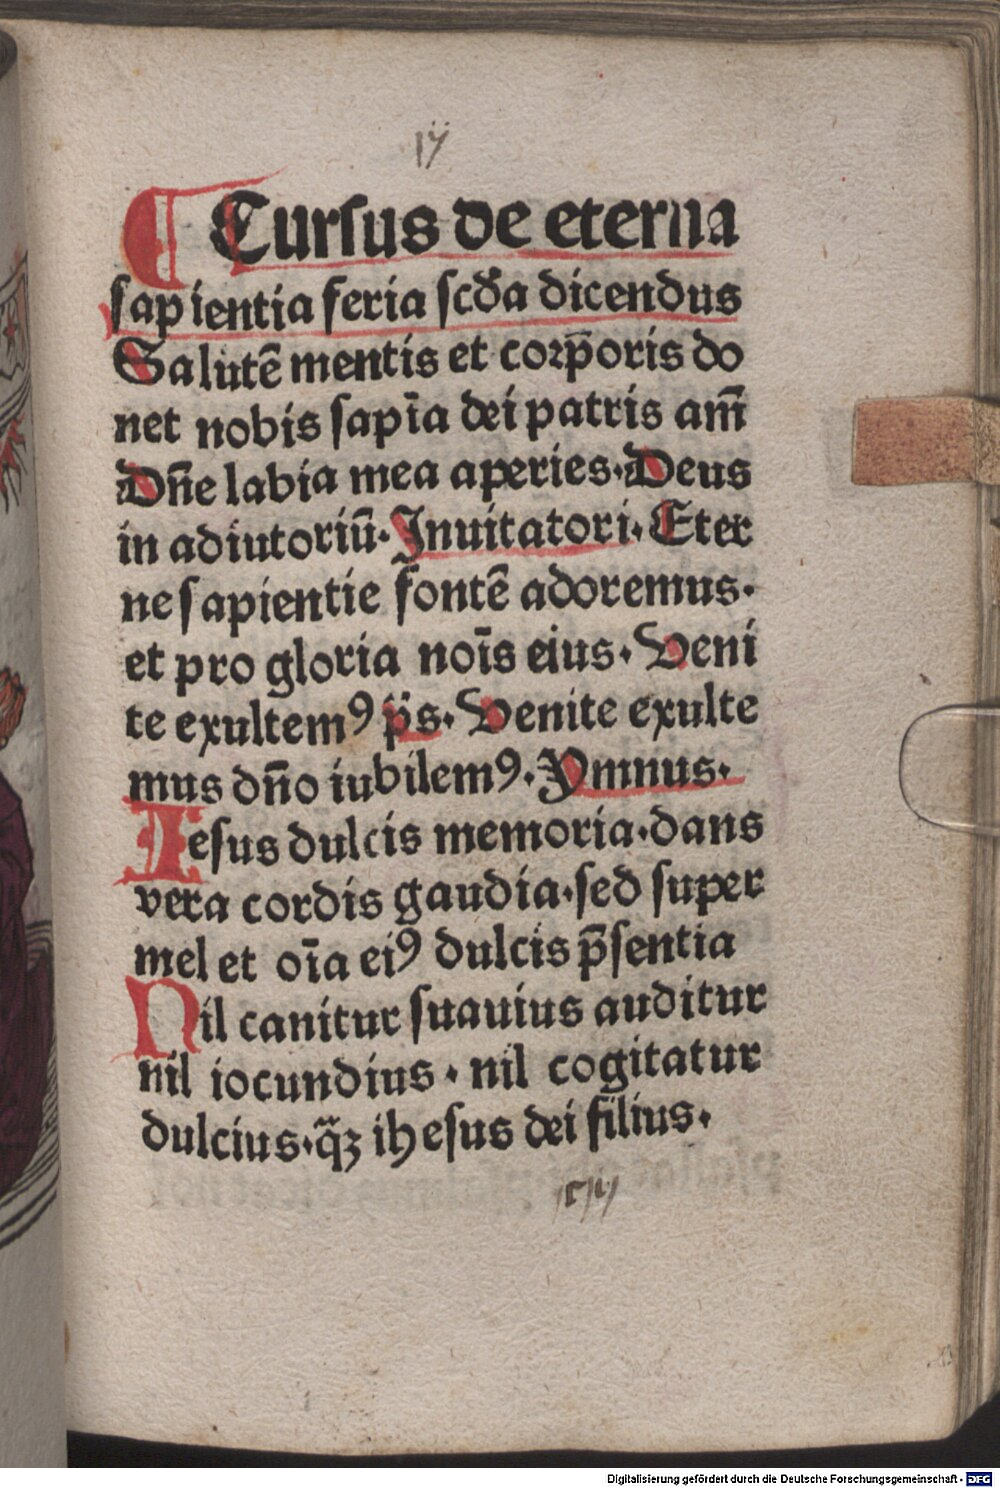 ij
¶ Cursus de eterna
sapientia feria scd̕a dicendus
Salutē mentis et corp̄oris do
net nobis sapīa dei patris am̄
Dn̄e labia mea aperies·Deus
in adiutoriū·Inuitatori·Eter
ne sapientie fontē adoremus·
et pro gloria noīs eius·Veni
te exultemꝰ p̄s·Venite exulte
mus dn̄o iubilemꝰ·Ymnus·
Iesus dulcis memoria·dans
vera cordis gaudia·sed super
mel et oīa eiꝰ dulcis p̄sentia
Nil canitur suauius auditur
nil iocundius·nil cogitatur
dulcius·q̄ꝫ ihesus dei filius·
Digitalisierung gefördert durch die Deutsche Forschungsgemeinschaft - DFG